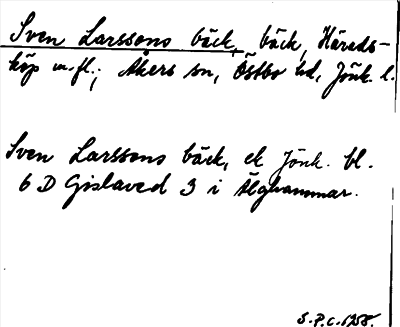 Sven Larssons bäck, bäck, Häreds-
köp m.fl.; Åkers sn, Östbo hd, Jönk. l.
Sven Larssons bäck, ek Jönk. bl.
6 D Gislaved 3 i Älghammar.
S.P.C. 1958.